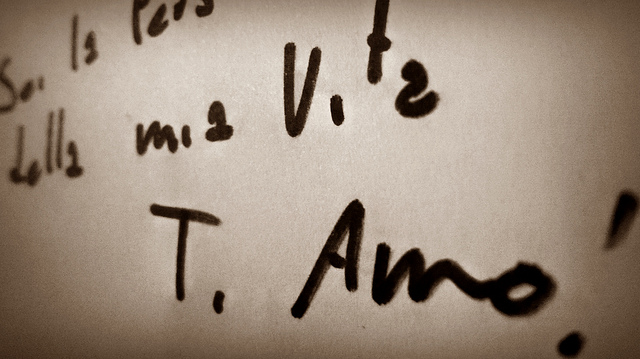 Sei la Pers
della mia Vita
Ti Amo!